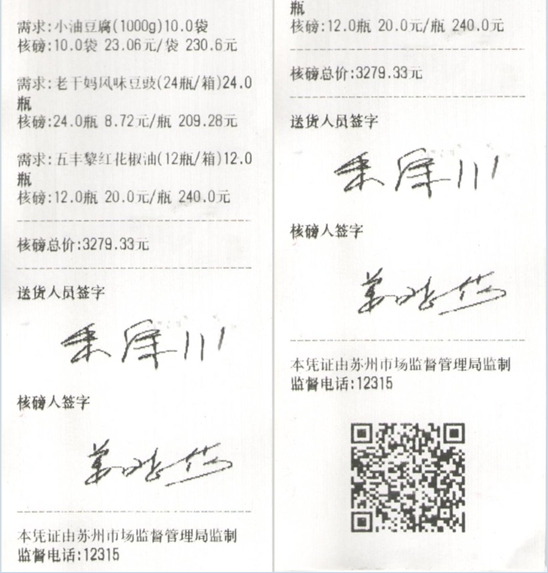 需求:小油豆腐(1000g)10.0袋
核磅:10.0袋 23.06元/袋 230.6元
需求:老干妈风味豆豉(24瓶/箱)24.0
瓶
核磅:24.0瓶 8.72元/瓶 209.28元
需求:五丰黎红花椒油(12瓶/箱)12.0
瓶
核磅:12.0瓶 20.0元/瓶 240.0元
核磅总价:3279.33元
送货人员签字
核磅人签字
本凭证由苏州市场监督管理局监制
监督电话:12315
瓶
核磅:12.0瓶 20.0元/瓶 240.0元
核磅总价:3279.33元
送货人员签字
核磅人签字
本凭证由苏州市场监督管理局监制
监督电话:12315